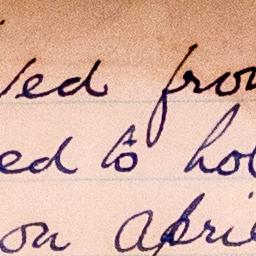 ved from
ed to hol
on April